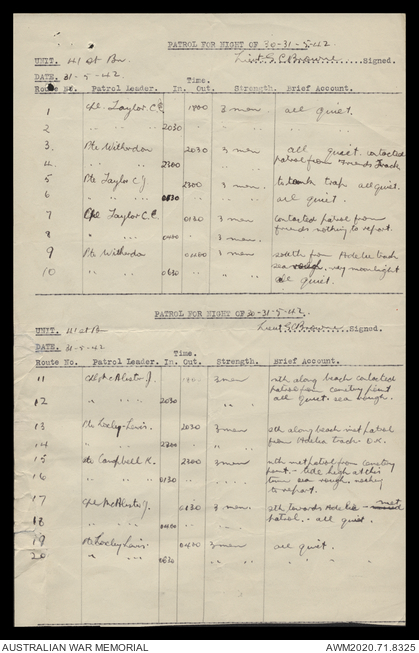 PATROL FOR NIGHT OF 30-31-5-42.
UNIT. 41 st Bn Lieut S.C. Signed.
DATE. 31-5-42.
Time.
Route No. Patrol Leader. In. Out. Strength. Brief Account.
1 Cpl. Taylor C.C. 1800 3 men all quiet.
2 " " " 2030 " " " "
3 Pte Witherdon 2030 3 men all quiet. contacted
4 " " 2300 patrol from Friends Track
5 Pte Taylor C J 2300 3 men. to tank trap all quiet.
6 " " " 0130 " " all quiet.
7 Cpl Taylor C.C. 0130 3 men contacted patrol from
8 " " 0400 3 men. friends nothing to report.
9 Pte Witherdon 0400 3 men south from Hotelia track
sea rough, very moonlight
10 " " 0630 " " all quiet.
PATROL FOR NIGHT OF 30-31-5-42.
UNIT. 41 st Bn Lieut S.C. Signed.
DATE. 31-5-42
Time.
Route No. Patrol Leader. In. Out. Strength. Brief Account.
11 Cpl McAlister J. 3 men nth along beach contacted
patrol from cemetery point
12 " " " 2030 " " all quiet. sea rough.
13 Pte Lexley-Lewis. 2030 3 men. sth along beach met patrol
14 " " " 2300 from Hotelia track. O.K.
15 Pte Campbell K. 2300 3 men nth met patrol from cemetery
point. - tide high at this
16 " " 0130 " " time sea rough, nothing
to report.
17 Cpl McAlister J. 0130 3 men. sth towards Hotelia - met
18 " " 0400 patrol. - all quiet.
19 Pte Lexley Lewis. 0400 3 men all quiet.
20 " " 0630 " " " "
AUSTRALIAN WAR MEMORIAL AWM2020.71.8325